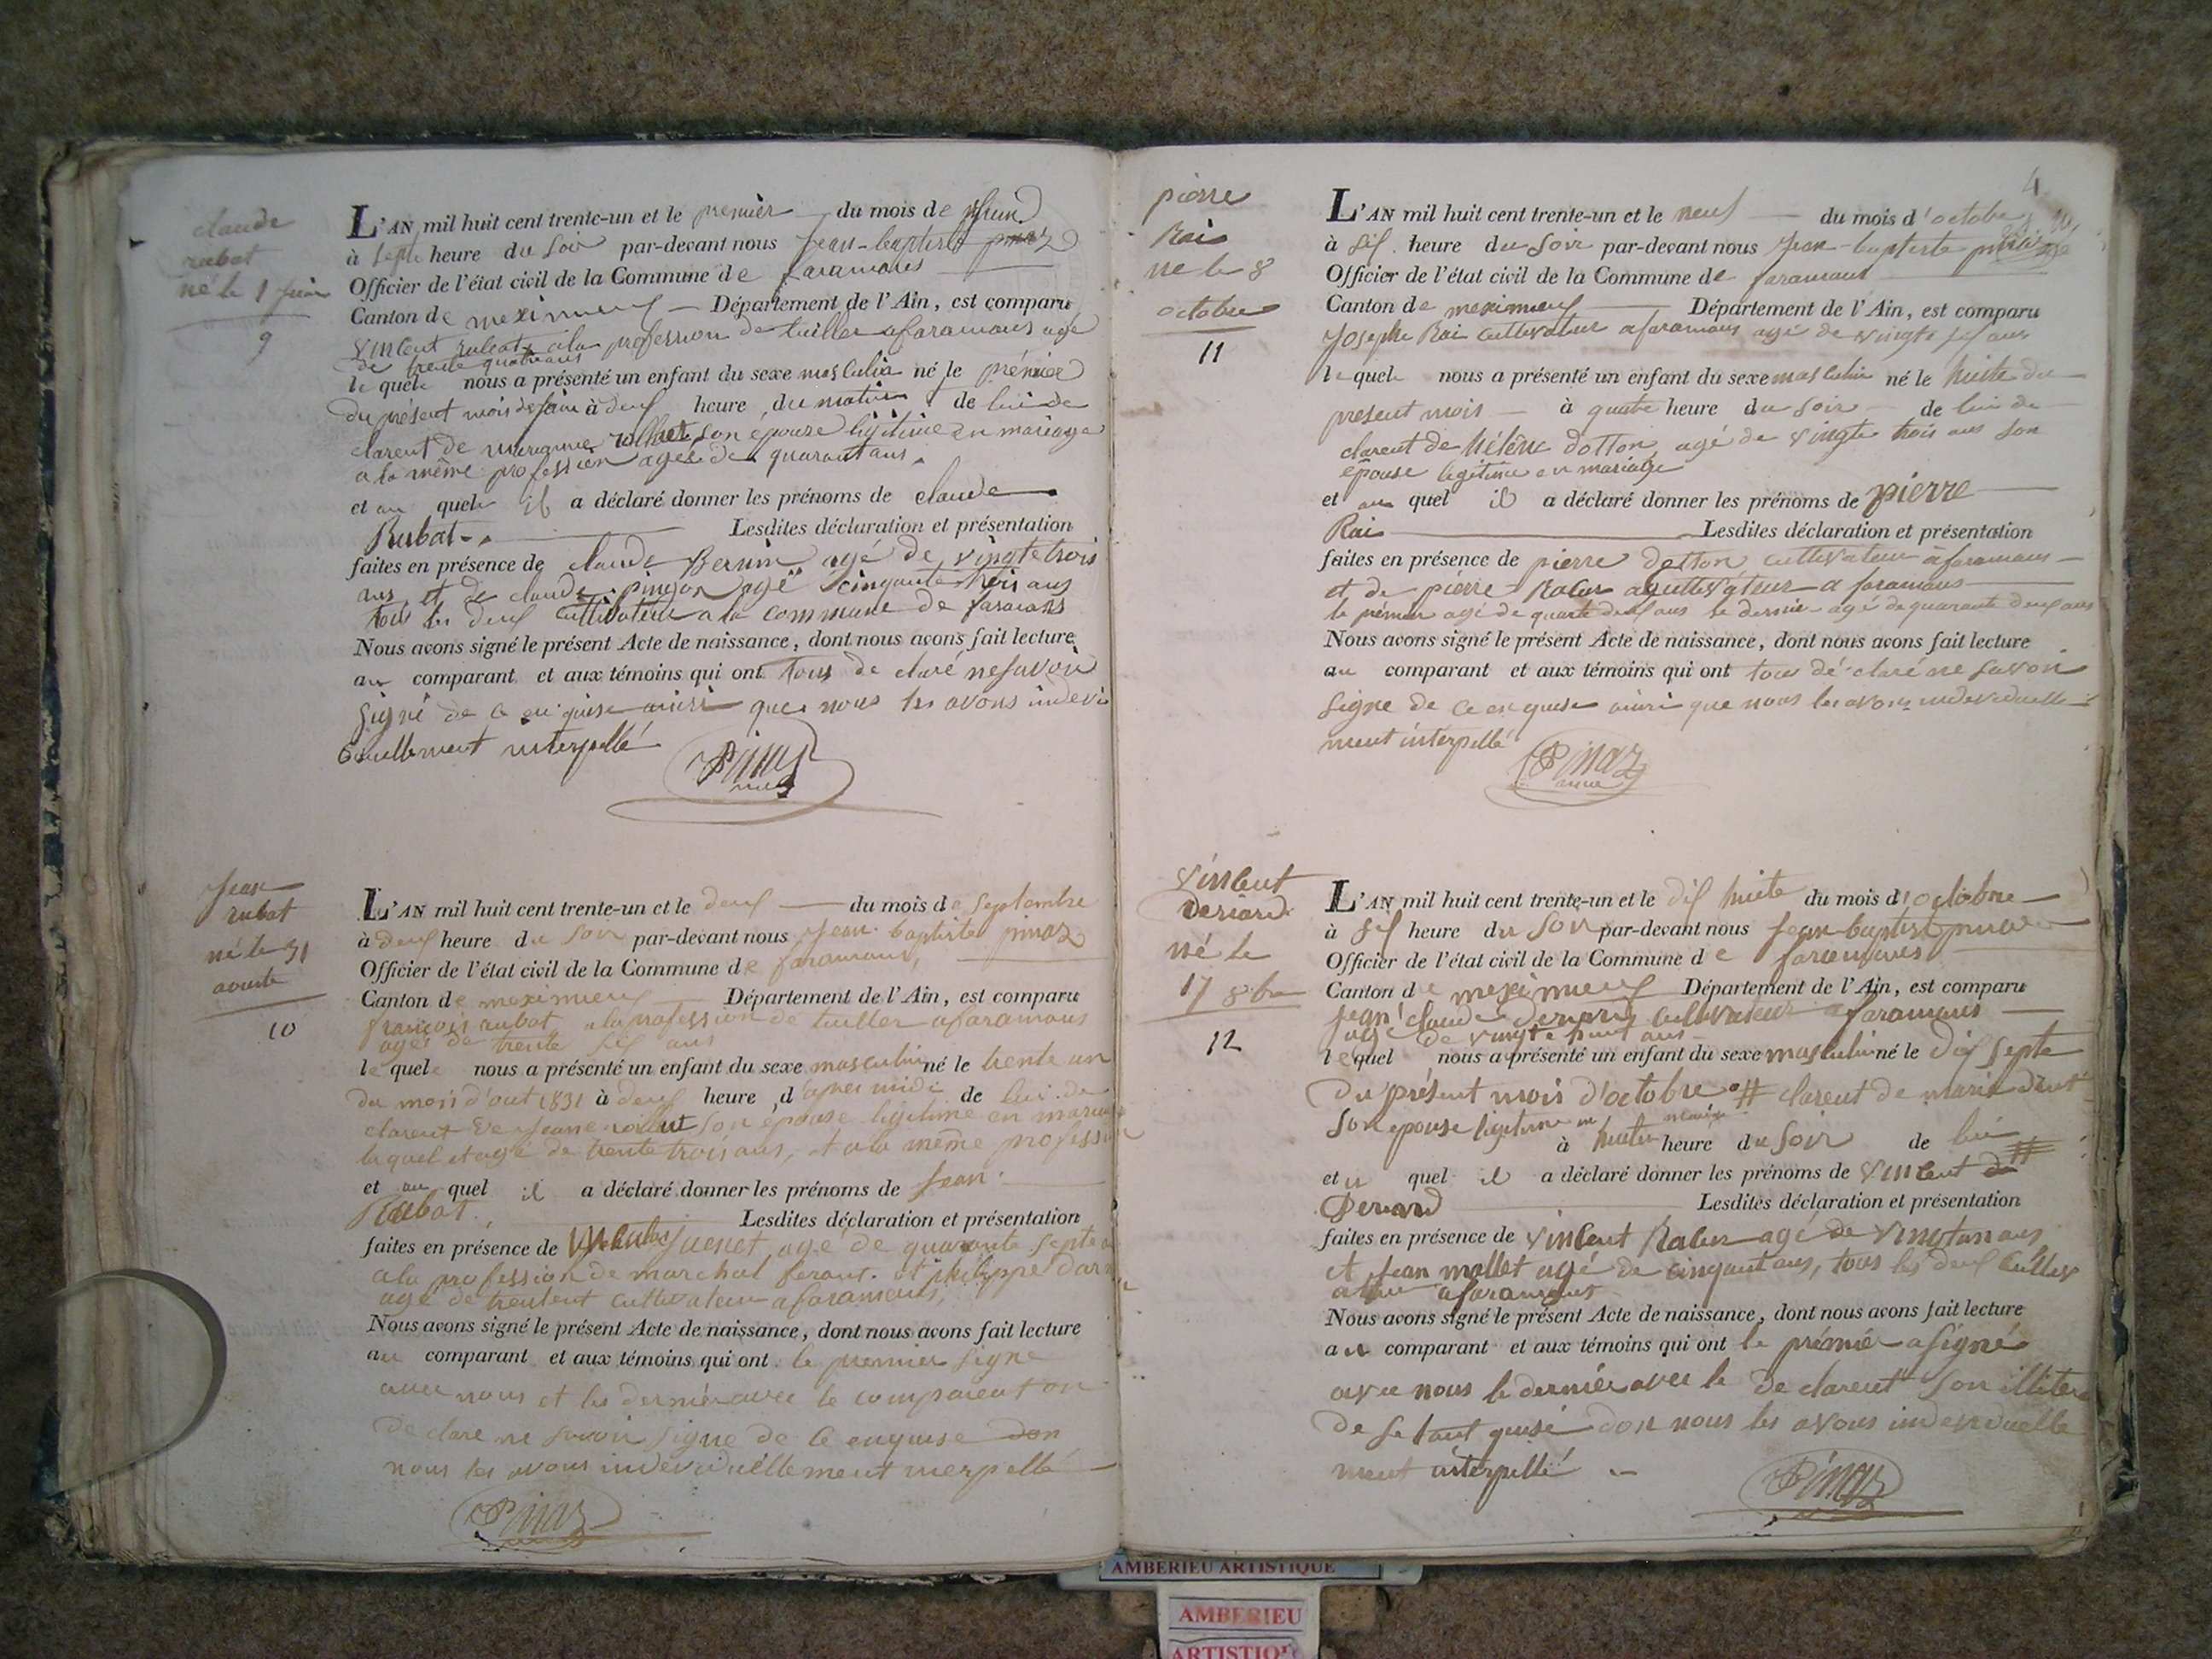 claude
rubat
né le 1 juin
9
L'AN mil huit cent trente-un et le premier du mois de juin
à sept heure du soir par-devant nous Jean-baptiste pinaz
Officier de l'état civil de la Commune de faramans
Canton de meximieux Département de l'Ain, est comparu
vincent rubat a la profession de tuillier a faramans agé
de trente quatre ans
le quel nous a présenté un enfant du sexe masculin né le prémier
du présent mois de juin à deux heure du matin de lui de
clarent de marianne son epouse légitime en mariage
a la même profession agée de quarant ans.
et au quel il a déclaré donner les prénoms de claude
Rubat Lesdites déclaration et présentation
faites en présence de claude agé de vingt trois
ans et de claude pingon agé cinquante trois ans
tous les deux cultivateur a la commune de faramans
Nous avons signé le présent Acte de naissance, dont nous avons fait lecture
au comparant et aux témoins qui ont tous de claré ne savoir
signé de ce en quise ainsi que nous les avons indevi
duellement interpellé
Pinaz
Jean
rubat
né le 31
aoust
10
L'AN mil huit cent trente-un et le deux du mois de septembre
à deux heure du soir par-devant nous Jean baptiste pinaz
Officier de l'état civil de la Commune de faramans,
Canton de meximieux Département de l'Ain, est comparu
françois rubat a la profession de tuiller a faramans
agé de trente six ans
le quel nous a présenté un enfant du sexe masculin né le trente un
du mois d'out 1831 à deux heure d'apres midi de lui de
clarent de Jeanne son epouse légitime en mariage
laquel et agé de trente trois ans, et a la même profession
et au quel il a déclaré donner les prénoms de Jean
Rubat. Lesdites déclaration et présentation
faites en présence de agé de quarante sept
a la profession de marchal ferant. et philippe
agé de cultivateur a faramans,
Nous avons signé le présent Acte de naissance, dont nous avons fait lecture
au comparant et aux témoins qui ont le premier signe
avec nous et les dernié avec le comparent on
declare ne savoir signe de ce enquise don
nous les avons indeviduéllement
Pinaz
4
pierre
Rai
né le 8
octobre
11
L'AN mil huit cent trente-un et le neuf du mois d'octobre
à six heure du soir par-devant nous Jean-baptiste pinaz
Officier de l'état civil de la Commune de faramans
Canton de meximieux Département de l'Ain, est comparu
Josephe Rai cultivateur a faramans agé de vingt six ans
le quel nous a présenté un enfant du sexe masculin né le huite du
present mois à quatre heure du soir de lui de
clarent de hélène dotton, agé de vingte trois ans son
épouse legitime en mariage
et au quel il a déclaré donner les prénoms de pierre
Rai Lesdites déclaration et présentation
faites en présence de pierre dotton cultivateur à faramans
et de pierre a faramans
le prémier agé de deux ans le dernier agé de quarante deux ans
Nous avons signé le présent Acte de naissance, dont nous avons fait lecture
au comparant et aux témoins qui ont tous dé claré ne savoir
signe de ce en quise ainsi que nous les avons indeviduelle
ment interpellé
Pinaz
vincent
né le
17 8bre
12
L'AN mil huit cent trente-un et le dix huite du mois d'octobre
à six heure du soir par-devant nous Jean baptiste pinaz
Officier de l'état civil de la Commune de faramans
Canton de meximieux Département de l'Ain, est comparu
Jean claude cultivateur a faramans
agé de vingte huit ans
le quel nous a présenté un enfant du sexe masculin né le dix septe
du présent mois d'octobre # clarent de marie
son epouse legitime en mariage
à huite heure du soir de lui
et u quel il a déclaré donner les prénoms de vincent de #
Lesdites déclaration et présentation
faites en présence de vincent agé de vingt un ans
et Jean mollet agé de cinquant ans, tous les deux cultiv
ateur a faramans
Nous avons signé le présent Acte de naissance, dont nous avons fait lecture
au comparant et aux témoins qui ont le prémiér a signé
avec nous le derniér avec le de clarent son
de se tant quisé don nous les avons indeviduelle
ment interpellé
Pinaz
AMBERIEU ARTISTIQUE
AMBERIEU
ARTISTIQUE